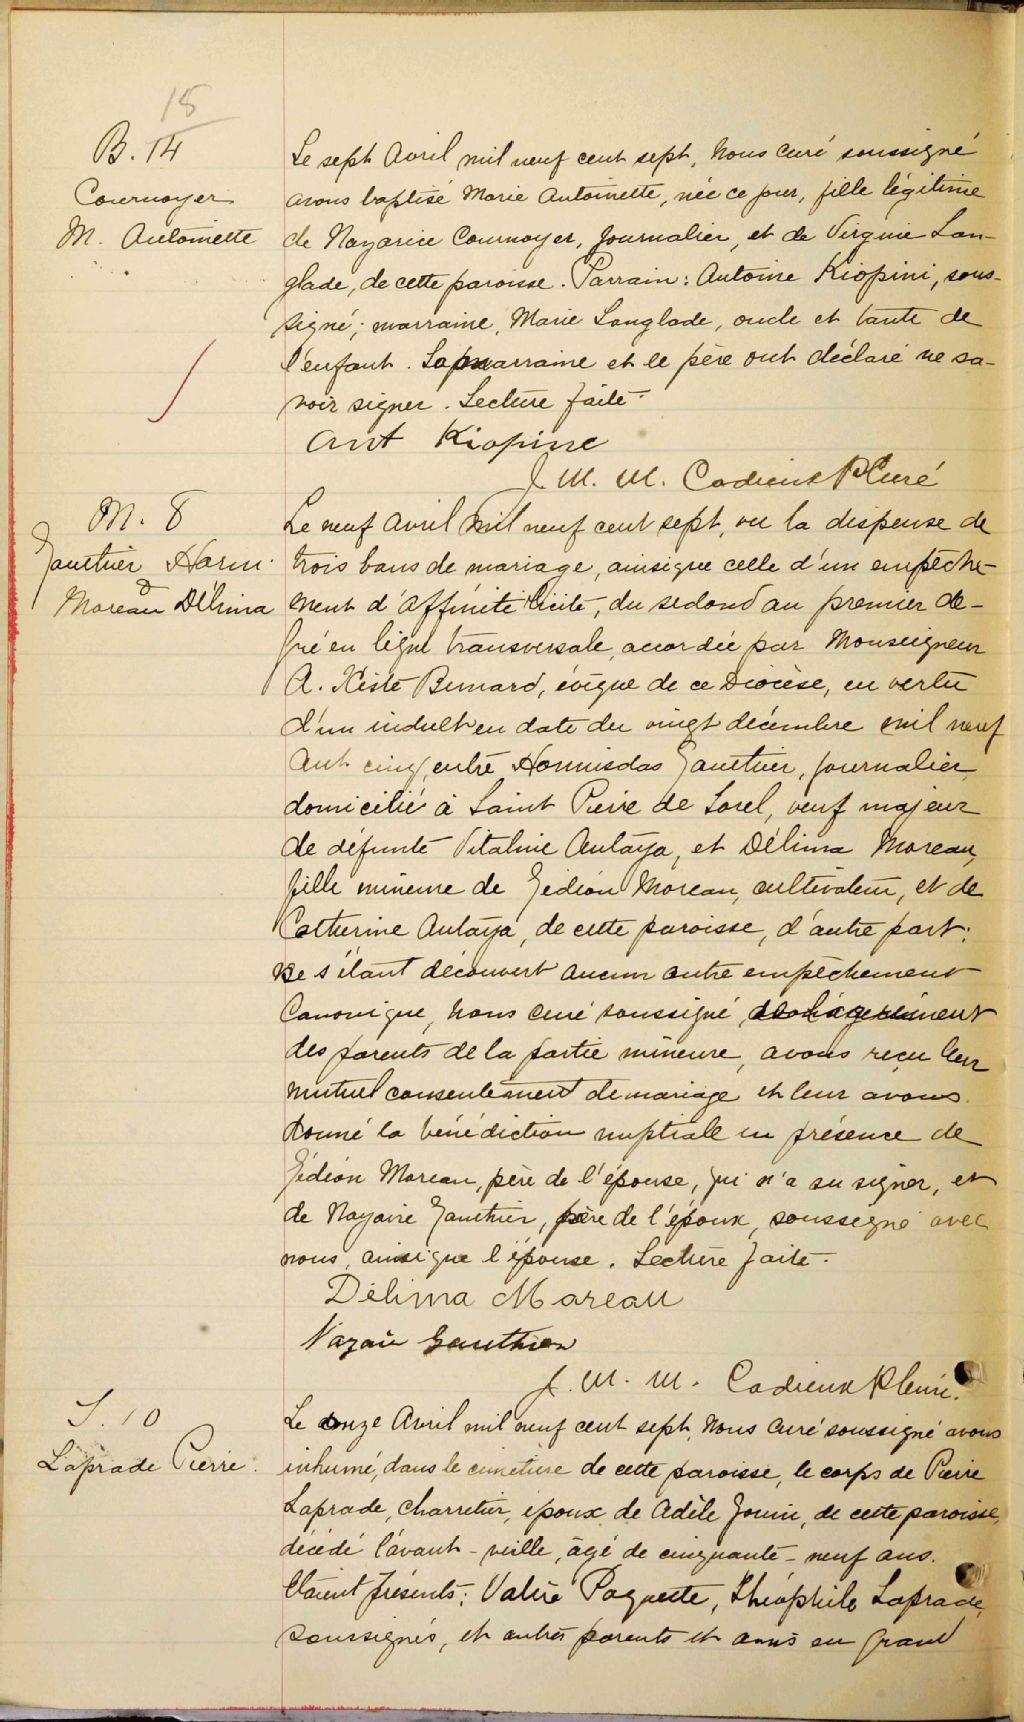 15
B. 14
Cournoyer
M. Antoinette
Le sept Avril mil neuf cent sept, Nous curé soussigné
avons baptisé Marie Antoinette, née ce jour, fille légitime
de Nazarice Cournoyer, journalier, et de Virginie Lan-
glade, de cette paroisse. Parrain: Antoine Kiopini, sous-
signé; marraine, Marie Langlade, oncle et tante de
l'enfant. La marraine et le père ont déclaré ne sa-
voir signer. Lecture faite.
Ant Kiopine
J. M. M. Cadieux Ptre Curé
M. 8
Gauthier Horm.
&
Moreau Délima
Le neuf Avril mil neuf cent sept, vu la dispense de
trois bans de mariage, ainsique celle d'un empêche-
ment d'affinité licite, du second au premier de-
gré en ligne transversale, accordée par Monseigneur
A. Xiste Bernard, évêque de ce Diocèse, en vertu
d'un indult en date du vingt décembre mil neuf
cent cinq, entre Hormisdas Gauthier, journalier,
domicilié à Saint Pierre de Sorel, veuf majeur
de défunte Vitaline Aulaya, et Délima Moreau,
fille mineure de Gédéon Moreau, cultivateur, et de
Catherine Aulaya, de cette paroisse, d'autre part;
ne s'étant découvert aucun autre empêchement
canonique, nous curé soussigné,
des parents de la partie mineure, avons reçu leur
mutuel consentement de mariage et leur avons
donné la bénédiction nuptiale en présence de
Gédéon Moreau, père de l'épouse, qui n'a su signer, et
de Nazaire Gauthier, père de l'époux, soussigné avec
nous, ainsique l'épouse. Lecture faite.
Délima Moreau
Nazair Gauthier
J. M. M. Cadieux Ptre Curé.
S. 10
Laprade Pierre.
Le onze Avril mil neuf cent sept, Nous curé soussigné avons
inhumé, dans le cimetière de cette paroisse, le corps de Pierre
Laprade, charretier, époux de Adèle Jouin, de cette paroisse,
décédé l'avant-veille, âgé de cinquante-neuf ans.
Etaient présents: Valère Paquette, Théophile Laprade,
soussignés, et autres parents et amis en grand